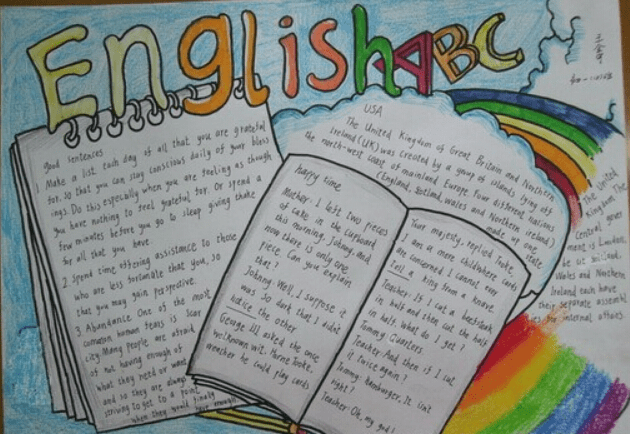 English ABC
good sentences
1 Make a list each day of all that you are grateful
for. so that you can stay conscious daily of your bless
ings. Do this especially when you are feeling as though
you have nothing to feel grateful for. Or spend a
few minutes before you go to sleep giving thake
for all that you have
2. Spend time offering assistance to those
who are less fortunate that you, so
that you may gain perspective.
3. Abundance One of the most
common human fears is scar
city Many people are afraid
of not having enough of
what they need or want
and so they are always
striving to get to a point
when they would finally
have enough
happy time
Mother: I left two pieces
of cake in the cupboard
this morning, Johnny, And
now there is only one
piece. Can you explain
that?
Johnny: Well, I suppose it
was so dark that I didn't
notice the other
George III, asked the once
well known wit. Horne Tooke,
weather he could play cards
Your majesty, replied Tooke,
I am a mere child where cards
are concerned I cannot even
tell a king from a knave
Teacher: If I cut a beefsteak
in half and then cut the half
in half. What do I get?
Tommy: Quarters
Teacher: And then if I cut
it twice again?
Tommy: Hamburger, It isn't
right?
Teacher: Oh, my god!
USA
The United Kingdom of Great Britain and Northern
Ireland (UK) was created by a group of islands lying off
the north-west coast of mainland Europe. Four different nations
(England, Scotland, Wales and Northern Ireland)
made up one
state
The United
Kingdom The
Central gover
ment is London,
Wales and Northern
Ireland each have
their separate assembl
ies for internal affairs.